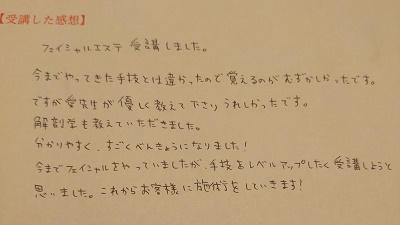 【受講した感想】
フェイシャルエステ 受講しました。
今までやってきた手技とは違かったので覚えるのがむずかしかったです。
ですが先生が優しく教えて下さりうれしかったです。
解剖学も教えていただきました。
分かりやすく、すごくべんきょうになりました!
今までフェイシャルをやっていましたが、手技をレベルアップしたく受講しようと
思いました。これからお客様に施術をしていきます!